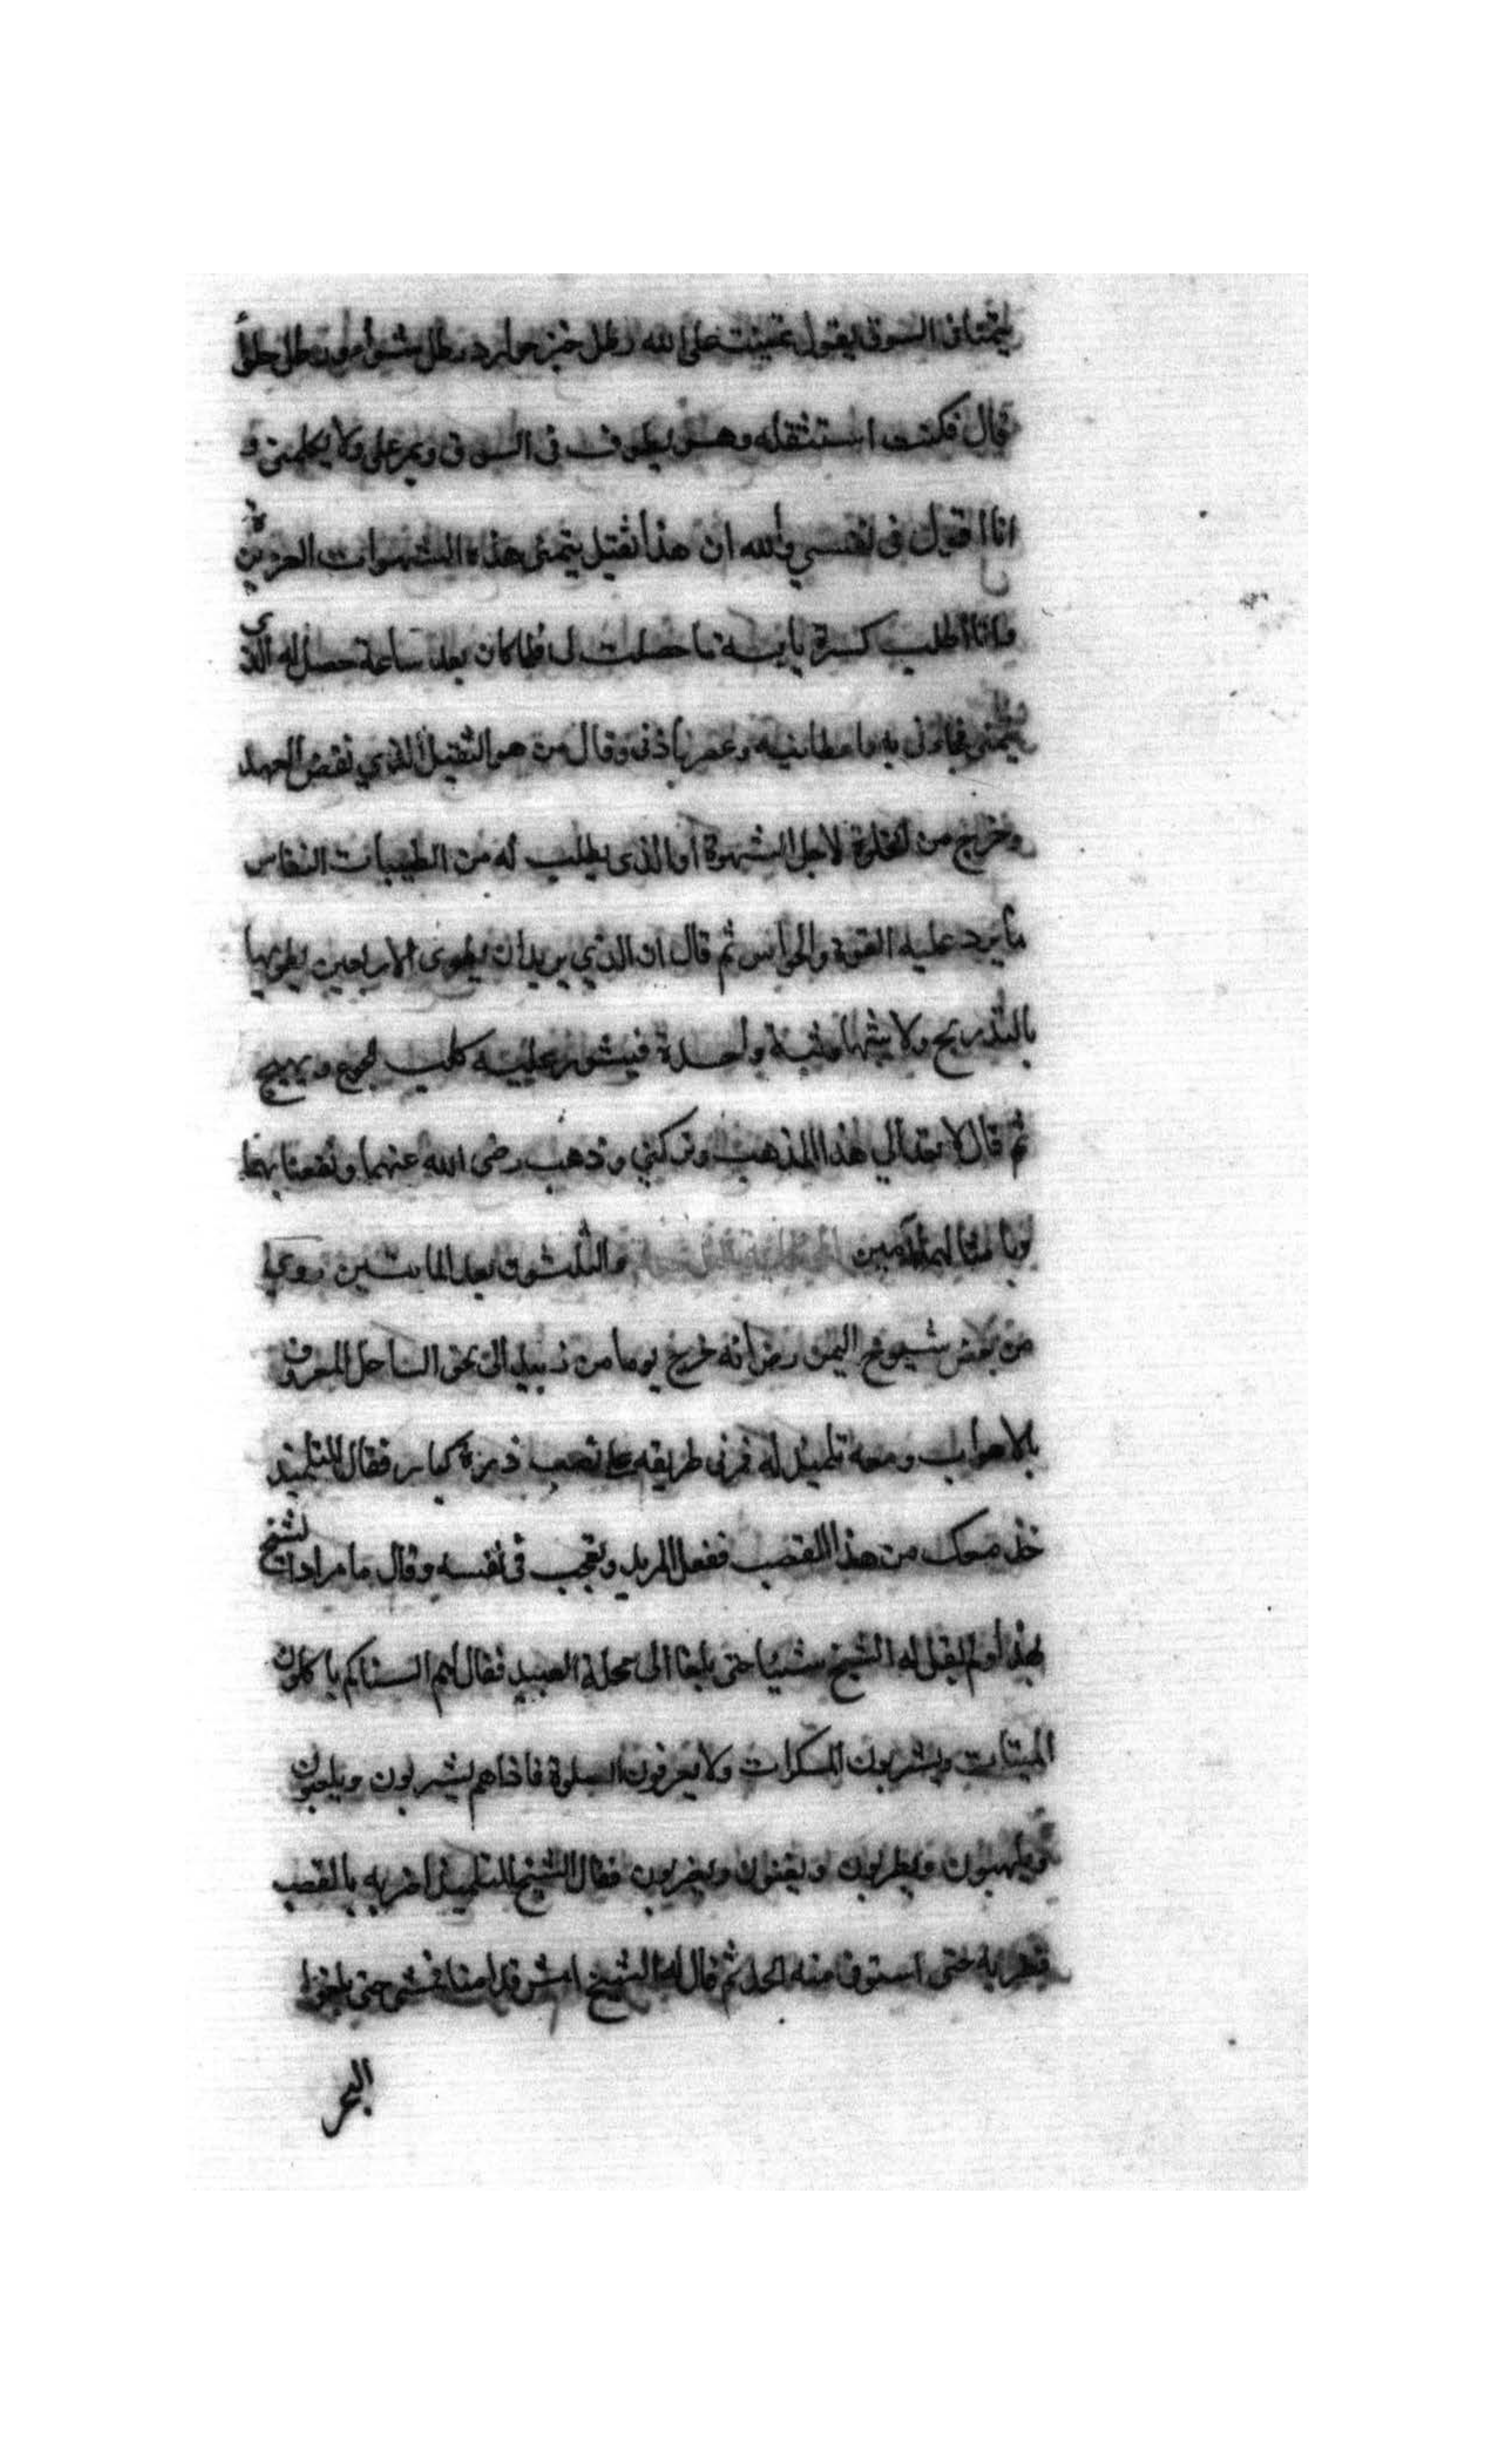 يتمنا في السوق يقول تمنيت على الله رطل خبز حوارد ورطل شوا ورطل حلوا
قال فكنت استثقله وهو يطوف في السوق ويمر علي ولا يكلمني و
انا اقول في نفسي والله ان هذا ثقيل يتمنى هذه الشهوات العزيزة
وانا اطلب كسرة يابسة ما حصلت لي فلما كان بعد ساعة حصل له الذي
يتمنى فجاءني به فاعطانيه وعصر باذني وقال من هو الثقيل الذي نقض العهد
وخرج من الخلوة لاجل الشهوة او الذي يطلب له من الطيبات النفايس
ما يرد عليه القوة والحواس ثم قال ان الذي يريد ان يطوى الاربعين يطويها
بالتدريج ولا يثبها وثبة واحدة فيثور عليه كلب الجوع ويهيج
ثم قال لا تعد الي هذا المذهب وتركني وذهب رضي الله عنهما ونفعنا بهما
وبامثالهما آمين والثلثون بعد المايتين روي
من بعض شيوخ اليمن رض انه خرج يوما من زبيد الى نحو الساحل المعروف
بالاهواب ومعه تلميذ له فمر في طريقه على قصب ذرة كبار فقال للتلميذ
خذ معك من هذا القصب ففعل المريد وتعجب في نفسه وقال ما مراد الشيخ
بهذا ولم يقل له الشيخ شيئا حتى بلغا الى محلة العبيد فقال لهم السناكم ياكلون
الميتات ويشربون المسكرات ولا يعرفون الصلوة فاذا هم يشربون ويلعبون
ويلهبون ويطربون ويغنون ويضربون فقال الشيخ للتلميذ اضربه بالقصب
فضربه حتى استوفا منه الحد ثم قال له الشيخ امش قدامنا فمشى حتى بلغوا
البحر